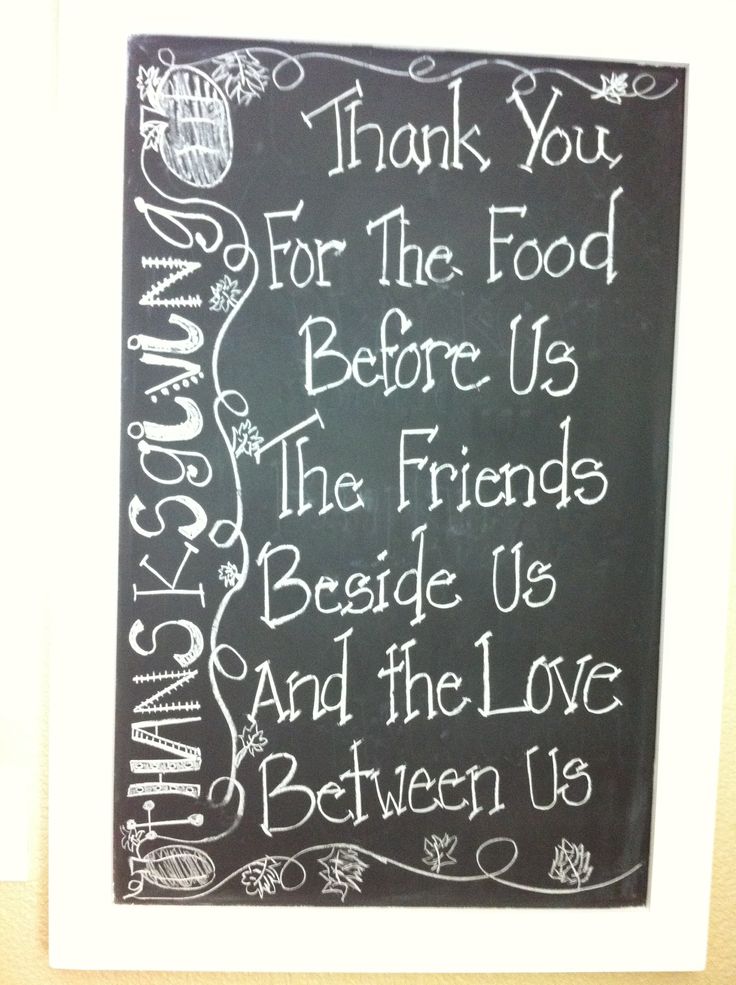 tHANSKSgiviNg
Thank You
For The Food
Before Us
The Friends
Beside Us
And the Love
Between Us